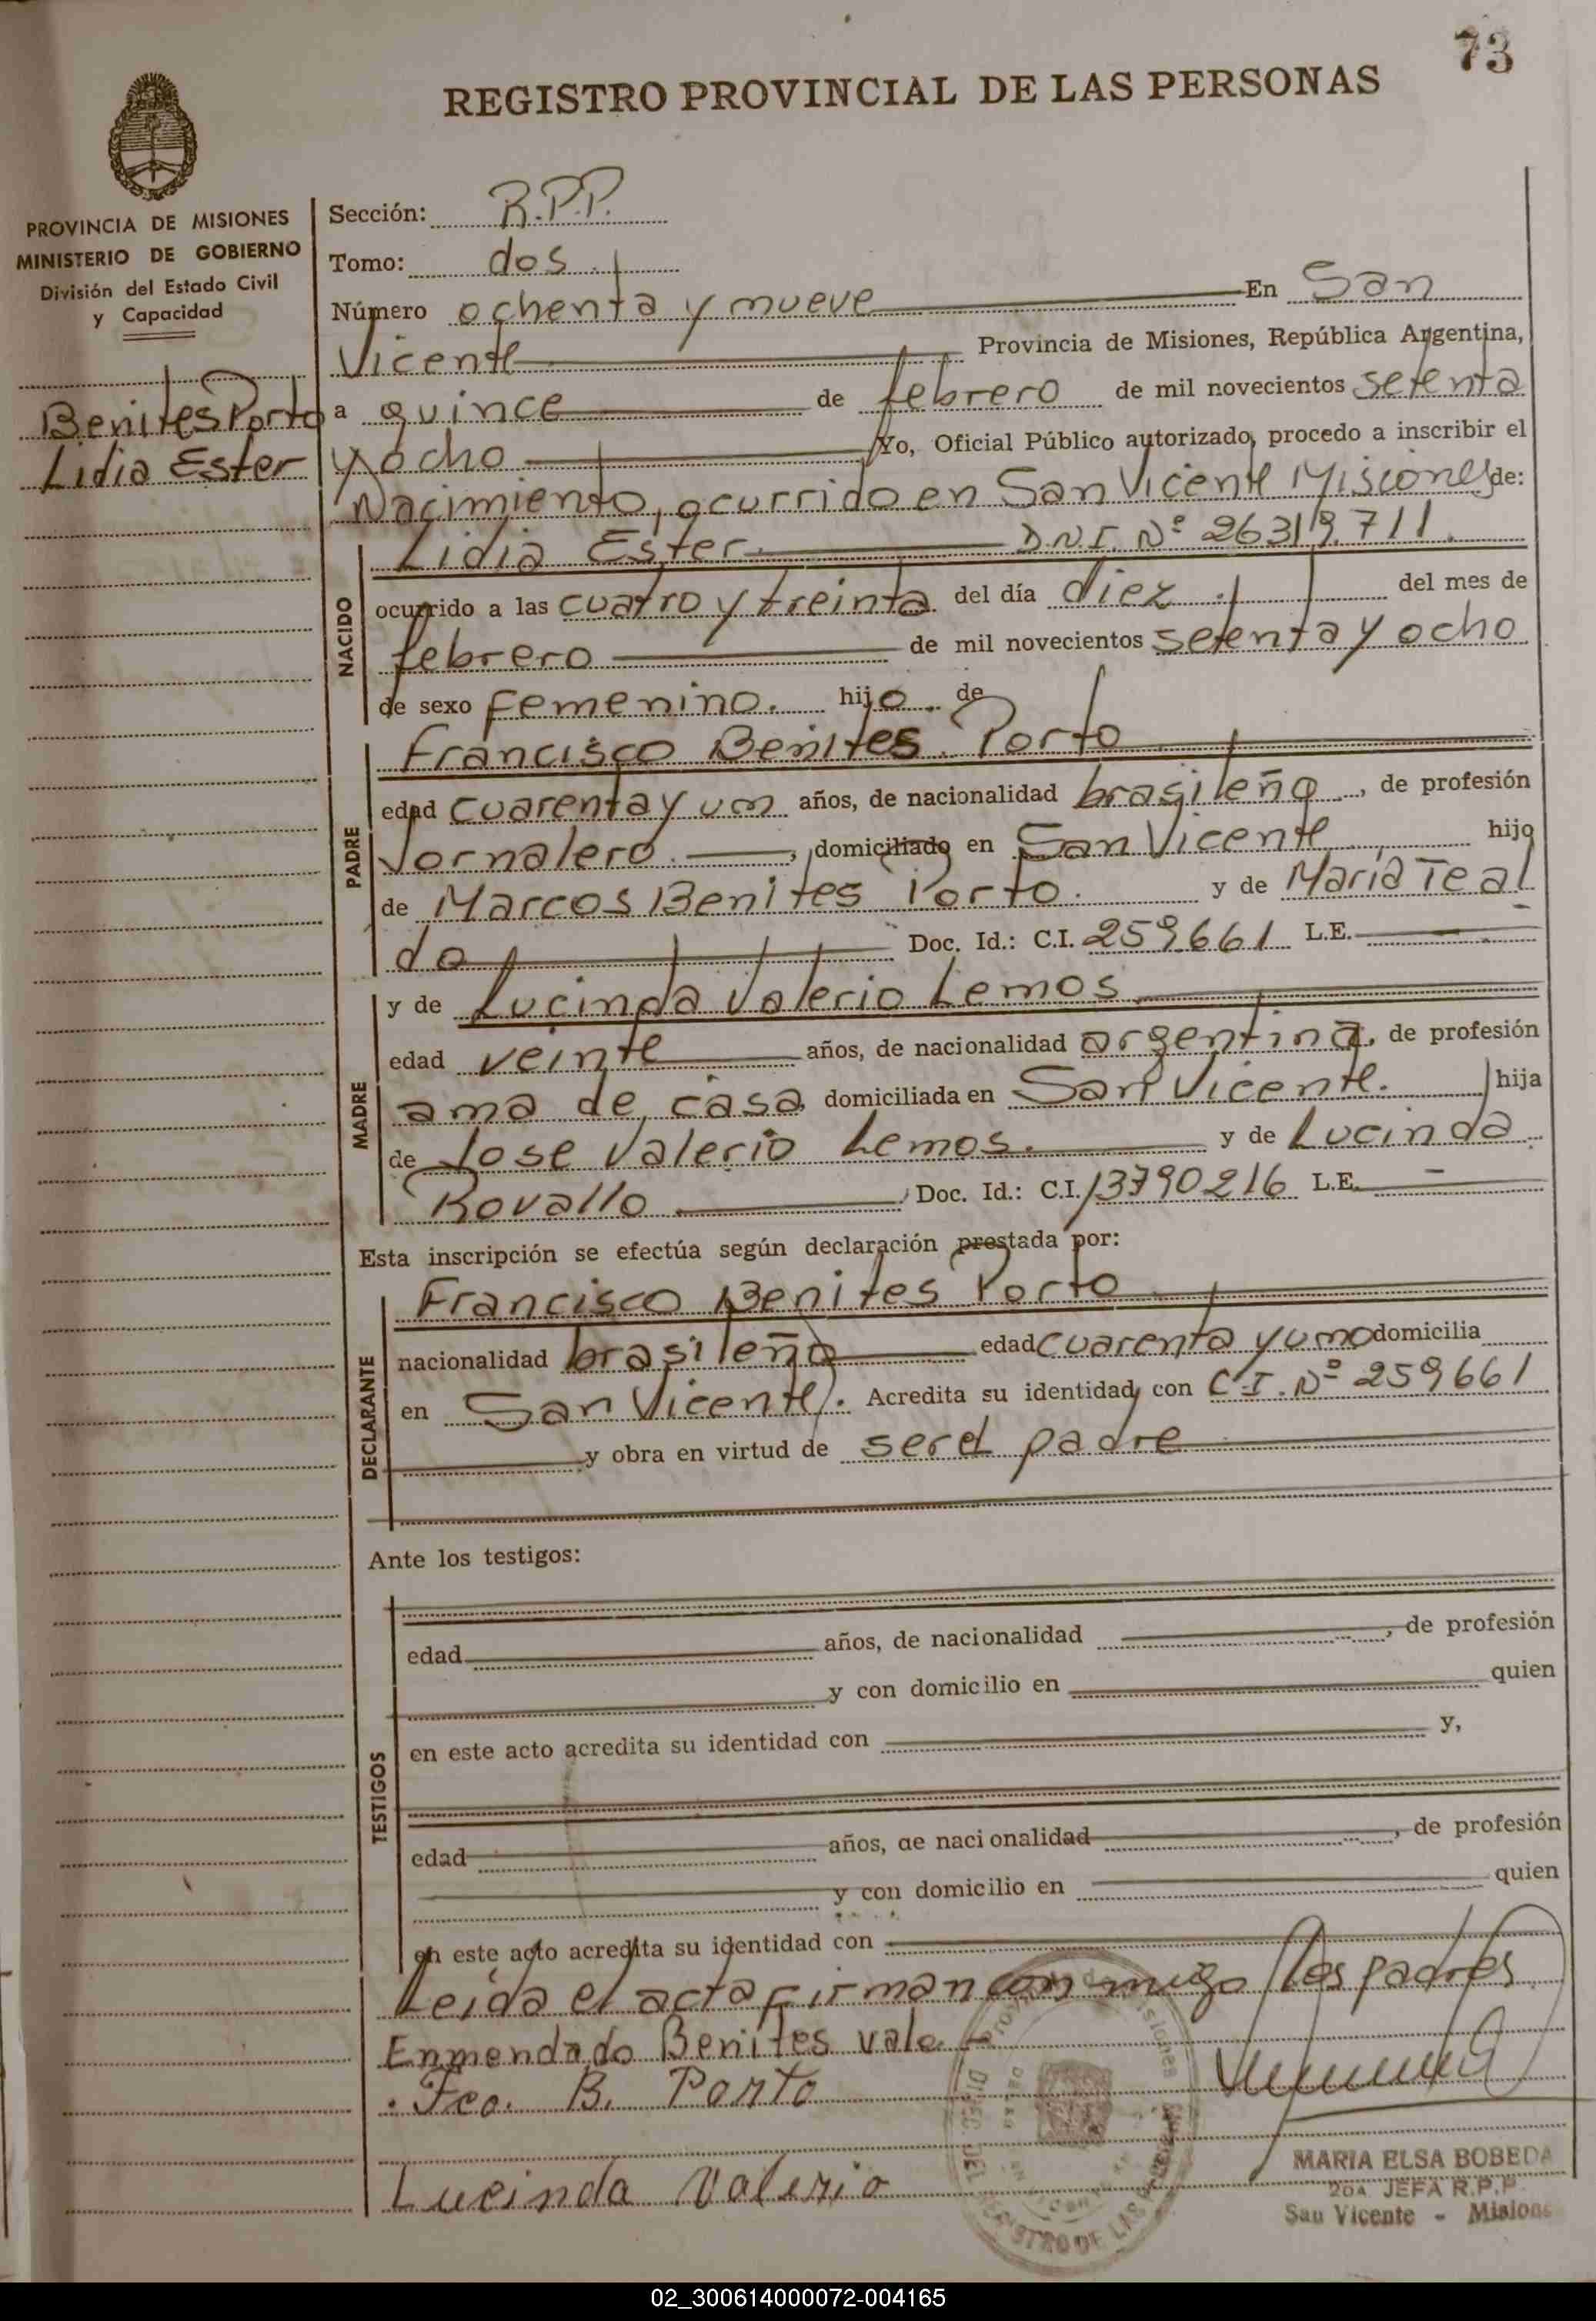 73
REGISTRO PROVINCIAL DE LAS PERSONAS
PROVINCIA DE MISIONES
MINISTERIO DE GOBIERNO
División del Estado Civil
y Capacidad
Benites Porto
Lidia Ester
Sección: R.P.P.
Tomo: dos.
Número ochenta y nueve En San
Vicente Provincia de Misiones, República Argentina,
a quince de febrero de mil novecientos setenta
y ocho Yo, Oficial Público autorizado, procedo a inscribir el
Nacimiento, ocurrido en San Vicente Misiones de:
Lidia Ester. D.N.I. Nº 26319.711.
NACIDO
ocurrido a las cuatro y treinta del día diez. del mes de
febrero de mil novecientos setenta y ocho
de sexo Femenino. hijo. de
PADRE
Francisco Benites Porto
edad cuarenta y un años, de nacionalidad brasileña, de profesión
Jornalero. , domiciliado en San Vicente hijo
de Marcos Benites Porto. y de María Teal
do Doc. Id.: C.I. 259.661 L.E.
MADRE
y de Lucinda Valerio Lemos
edad veinte años, de nacionalidad argentina, de profesión
ama de casa, domiciliada en San Vicente. hija
de Jose Valerio Lemos. y de Lucinda
Rovallo Doc. Id.: C.I. 13790216 L.E. -
Esta inscripción se efectúa según declaración prestada por:
DECLARANTE
Francisco Benites Porto
nacionalidad brasileña edad cuarenta y uno domicilia
en San Vicente. Acredita su identidad con C.I. Nº 259661
y obra en virtud de ser el padre
Ante los testigos:
TESTIGOS
edad años, de nacionalidad , de profesión
y con domicilio en quien
en este acto acredita su identidad con y,
edad años, de nacionalidad , de profesión
y con domicilio en quien
en este acto acredita su identidad con
Leída el acta Firman con migo los padres.
Enmendado Benites vale
Fco. B. Porto
Lucinda Valerio
MARIA ELSA BOBEDA
2da. JEFA R.P.P.
San Vicente - Misiones
02_300614000072-004165